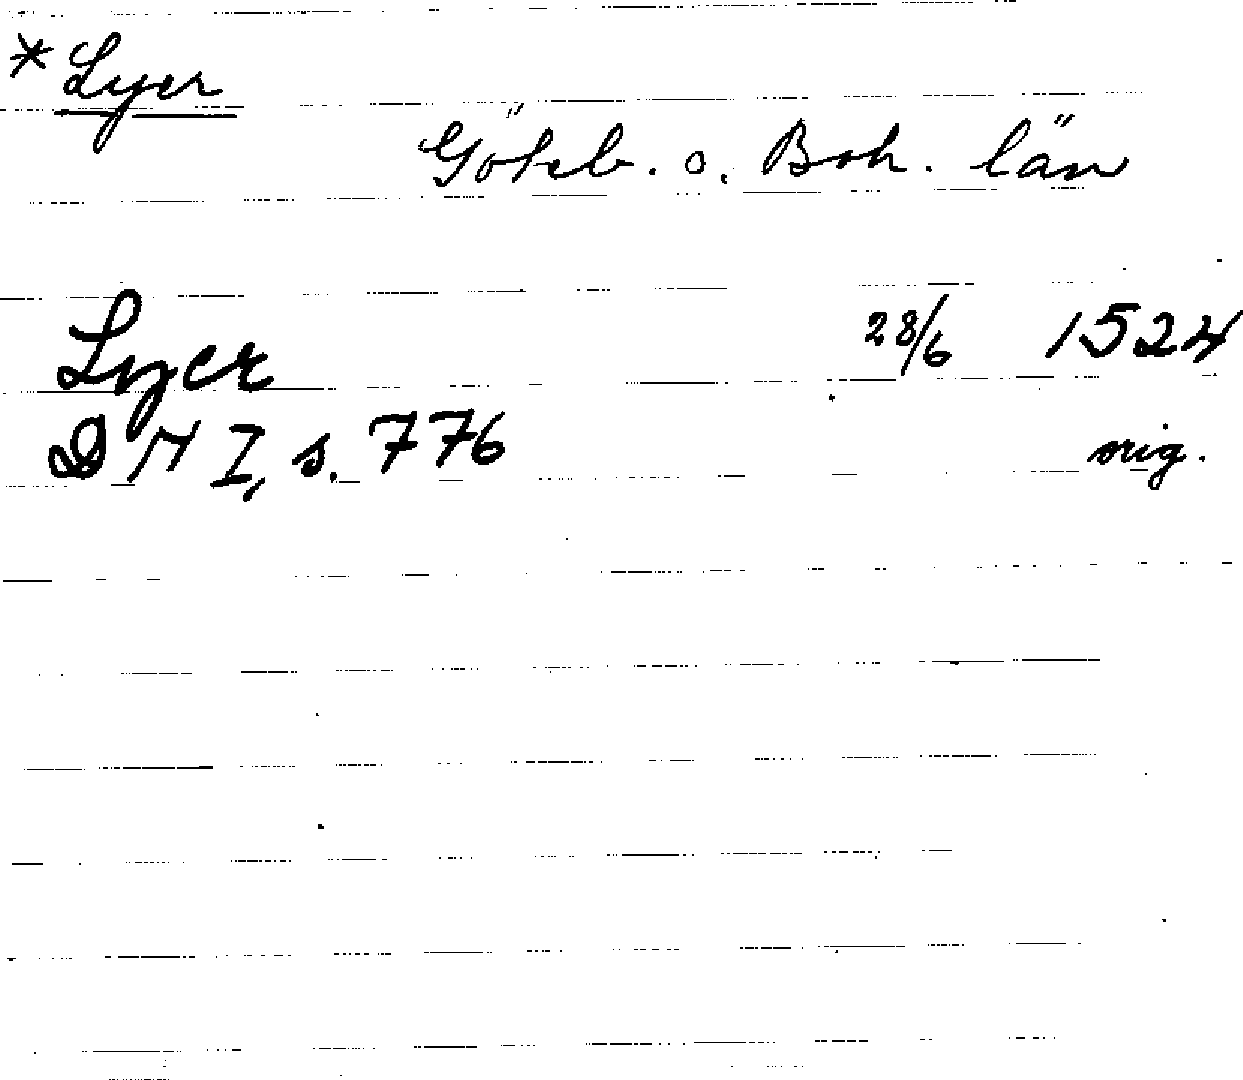 * Lyer
Göteb. o. Boh. län
Lyer 28/6 1524
DN I, s. 776 orig.